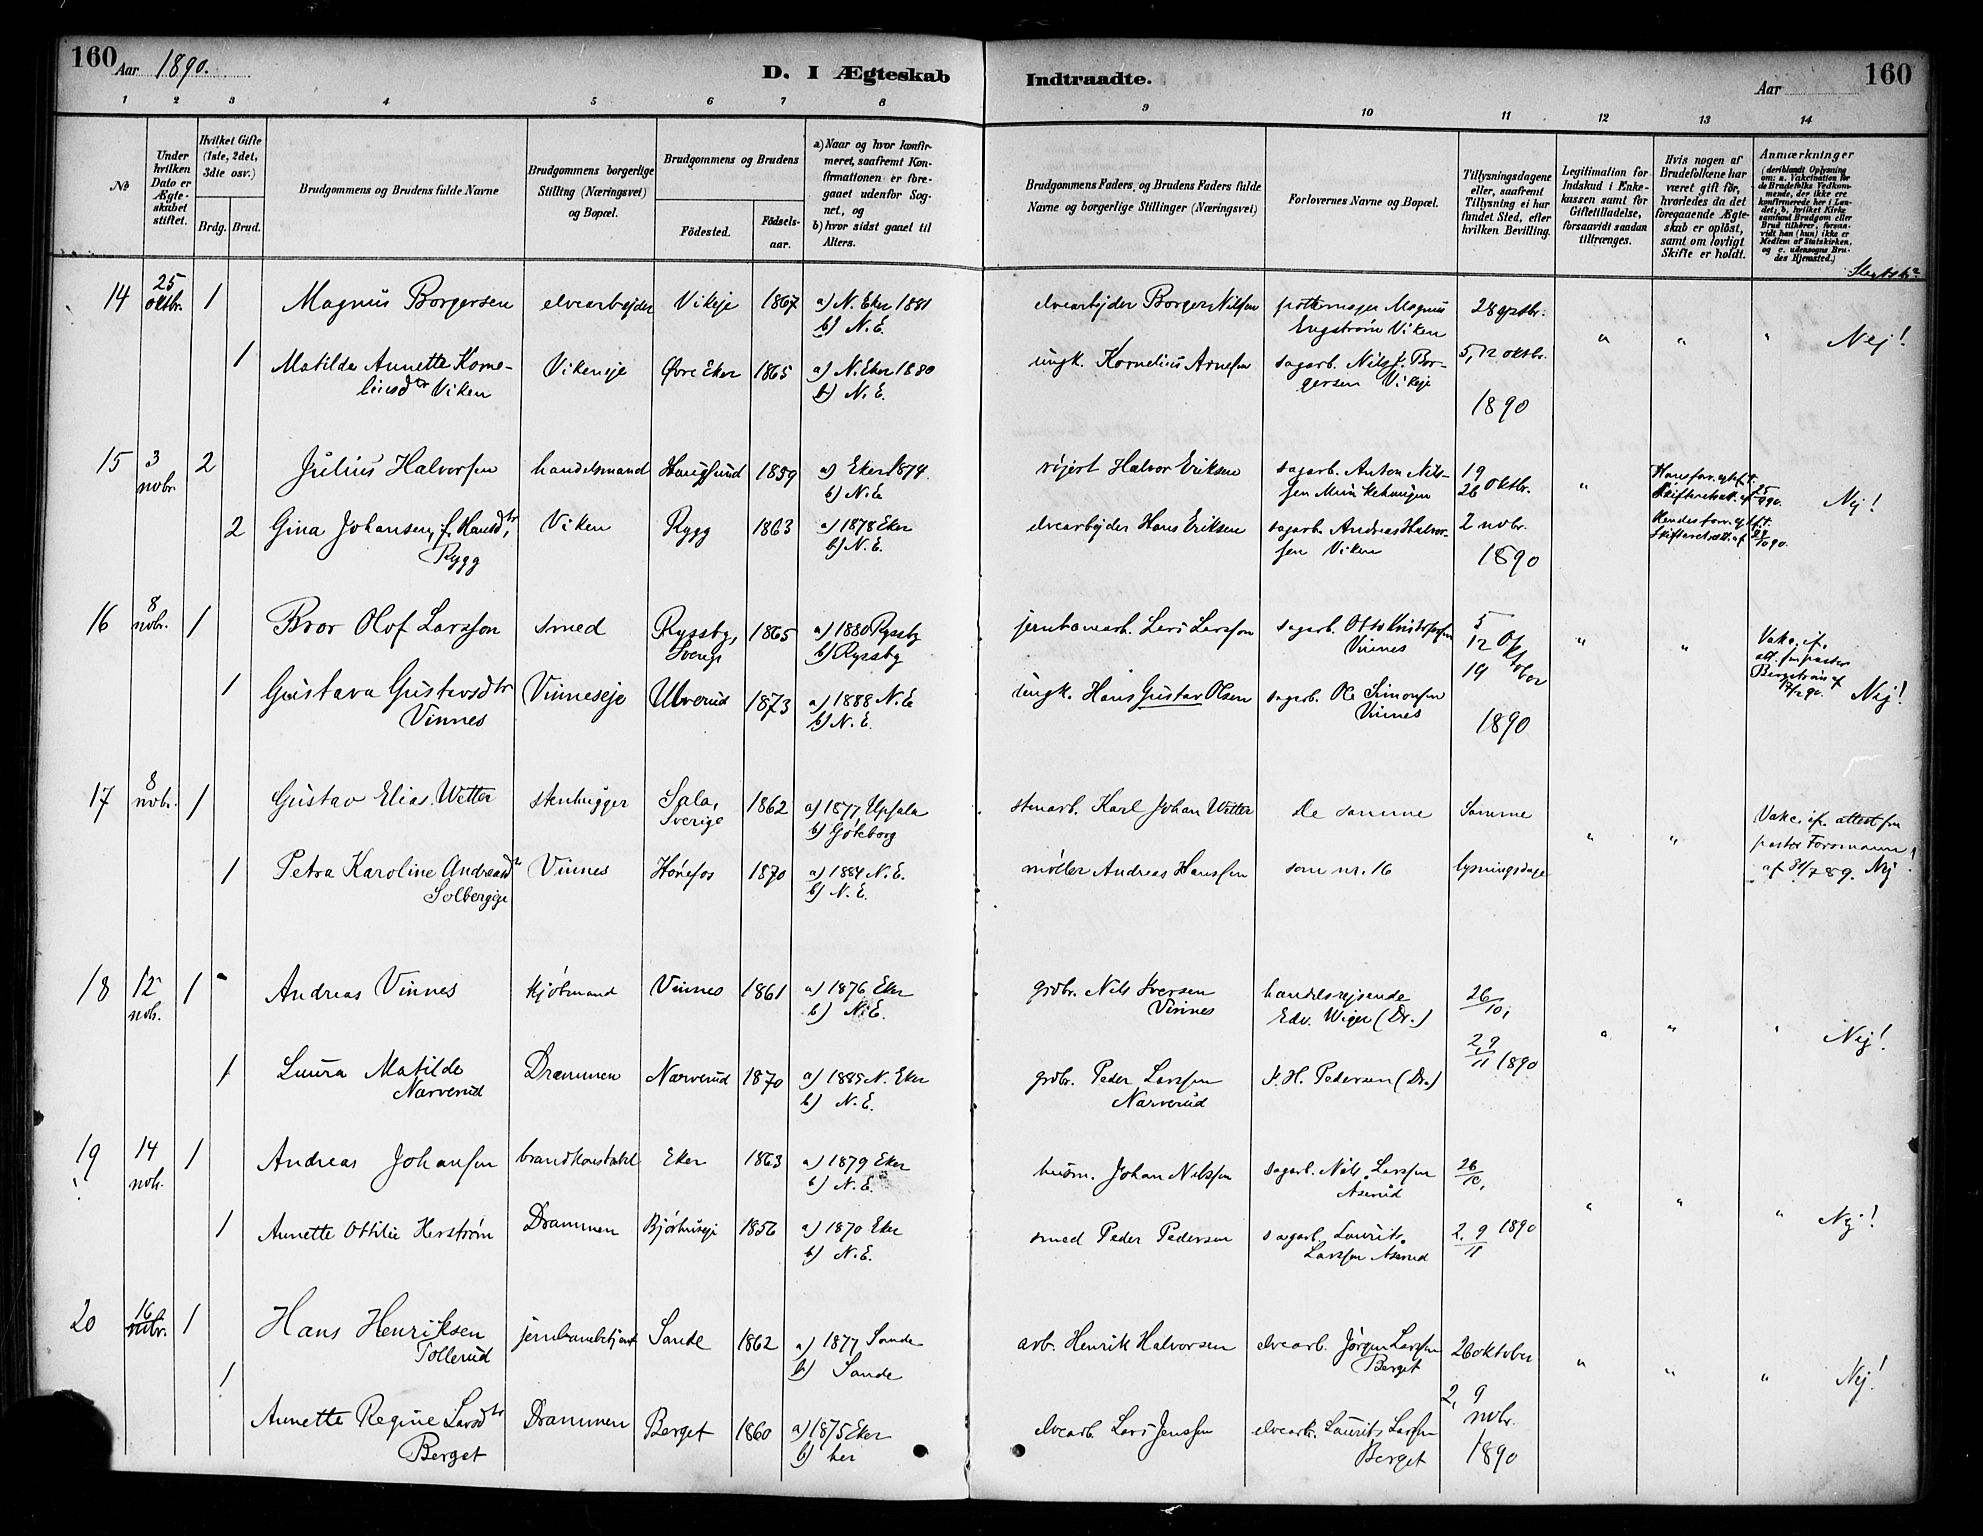 160 Aar 1890.
D. I Ægteskab Indtraadte.
Aar 160
1 2 3 4 5 6 7 8 9 10 11 12 13 14
№
Under hvilken Dato er Ægteskabet stiftet.
Hvilket Gifte (1ste, 2det, 3dte osv.)
Brdg. Brud.
Brudgommens og Brudens fulde Navne
Brudgommens borgerlige Stilling (Næringsvei) og Bopæl.
Brudgommens og Brudens
Fødested. Fødselsaar.
a) Naar og hvor konfirmeret, saafremt Konfirmationen er foregaaet udenfor Sognet, og
b) hvor sidst gaaet til Alters.
Brudgommens Faders, og Brudens Faders fulde Navne og borgerlige Stillinger (Næringsvei)
Forlovernes Navne og Bopæl.
Tillysningsdagene eller, saafremt Tillysning ei har fundet Sted, efter hvilken Bevilling.
Legitimation for Indskud i Enkekassen samt for Giftetilladelse, forsaavidt saadan tiltrænges.
Hvis nogen af Brudefolkene har været gift før, hvorledes da det foregaaende Ægteskab er opløst, samt om lovligt Skifte er holdt.
Anmærkninger
(deriblandt Oplysning om: a. Vakcination for de Brudefolks Vedkommende, der ikke ere konfirmerede her i Landet; b, hvilket Kirkesamfund Brudgom eller Brud tilhører, forsaavidt han (hun) ikke er Medlem af Statskirken, og c. udensogns Brudes Hjemsted.)
14 25 oktbr. 1 Magnus Borgersen elvearbejder Vikeje 1867 a) N. Eker 1881
b) N.E.
elvearbejder Borger Nilsen Magnus Engstrøm Viken 28 septbr.
1 Matilde Annette Korneliusdtr Viken Vikeneje Øvre Eker 1865 a) N. Eker 1880
b) N.E.
ungk. Kornelius Arnesen sagarb. Nils J. Borgersen Vikeje 5, 12 oktbr.
1890
" " " Nej!
15 3 nobr. 2 Julius Halvorsen handelsmand Hougsund 1859 a) Eker 1874.
b) N.E.
Halvor Eriksen sagarb. Anton Nilssen 19
26 oktbr.
"
Nej!
2 Gina Johansen, f. Hansdtr, Rygg Viken Rygg 1863 a) 1878 Eker
b) N.E.
elvearbejder Hans Eriksen sagarb. Andreas Halvorsen Viken 2 nobr.
1890
16 8 nobr. 1 Bror Olof Larsson smed Ryssby, Sverige 1865 a) 1880 Ryssby
b) Ryssby
jernbanearb. Lars Larsson sagarb. Otto Kristofersen Vinnes 5
12 Oktober
19
" "
Vakc. if.
att. fra pastor
Bergstrøm af
1 Gustava Gustavsdtr Vinnes Vinneseje Ulverud 1873 a) 1888 N.E.
b) N.E.
ungk. Hans Gustav Olsen sagarb. Ole Simonsen Vinnes
1890
Nej!
17 8 nobr. 1 Gustav Elias Wetter stenhugger Sala, Sverige 1862 a) 1877 Upsala
b) Göteborg
stenarb. Karl Johan Wetter De samme Samme
" "
Vakc. if. attest fra
pastor Forsmann
af 31/7 89. Nej!
1 Petra Karoline Andreasdtr Solbergeje Vinnes Hønefos 1870 a) 1884 N.E.
b) N.E.
møller Andreas Hanssen som nr. 16 lysningsdage
18 12 nob. 1 Andreas Vinnes kjøbmand Vinnes 1861 a) 1876 Eker
b) N.E.
grdbr. Nils Iversen Vinnes handelsrejsende Edv. Wiger (Dr.) 26/10,
1 Laura Matilde Narverud Drammen Narverud 1870 a) 1885 N. Eker
b) N.E.
grdbr. Peder Larssen Narverud P.H. Pedersen (Dr.) 2, 9/11 1890
" " " Nej!
19 14 nob. 1 Andreas Johansen brandkonstabel Eker 1863 a) 1879 Eker
b) N.E.
husm. Johan Nilssen sagarb. Nils Larssen Aserud 26/10,
1 Annette Ottilie Herstrøm Drammen 1856 a) 1870 Eker
b) N.E.
smed Peder Pedersen sagarb. Laurits Larssen Aserud 2, 9/11 1890
" " " Nej!
20 16 nobr. 1 Hans Henriksen Tollerud jernbanebetjent Sande 1862 a) 1877 Sande
b) Sande
arb. Henrik Halvorsen elvearb. Jørgen Larssen Berget 26 oktober
1 Annette Regine Larsdtr Berget Drammen Berget 1860 a) 1875 Eker
b) her
elvearb. Lars Jenssen elvearb. Laurits Larssen Berget 2, 9 nobr.
1890
" " " Nej!